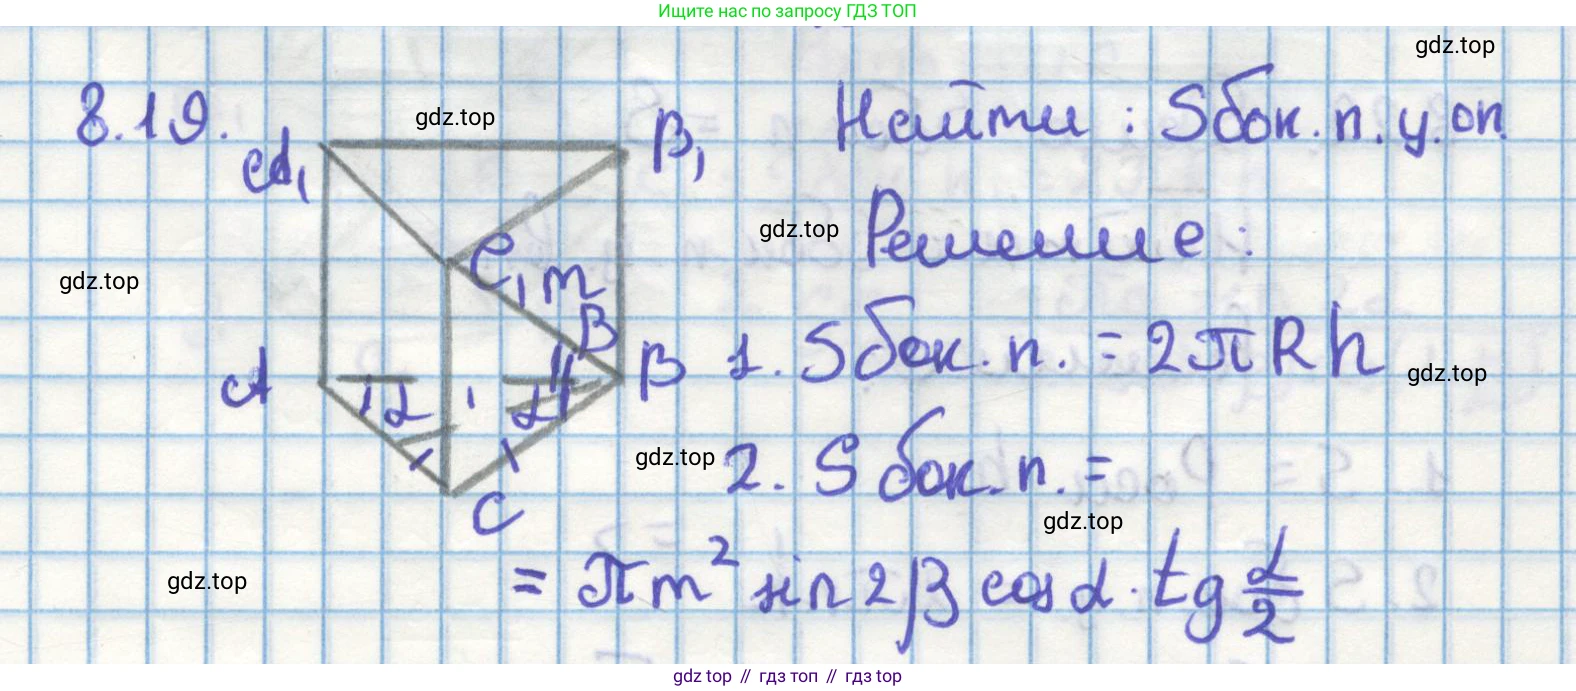 Ищите нас по запросу ГДЗ ТОП
gdz.top
8.19.
gdz.top
A₁
B₁
Найти : Sбок. п. у. оп.
gdz.top
Решение :
gdz.top
C₁ m
β
A
B
α
α
1. Sбок. п. = 2πRh
gdz.top
gdz.top
2. Sбок. п. =
C
gdz.top
gdz.top
= πm² sin 2β cos α · tg α/2
gdz.top // гдз топ // гдз.top